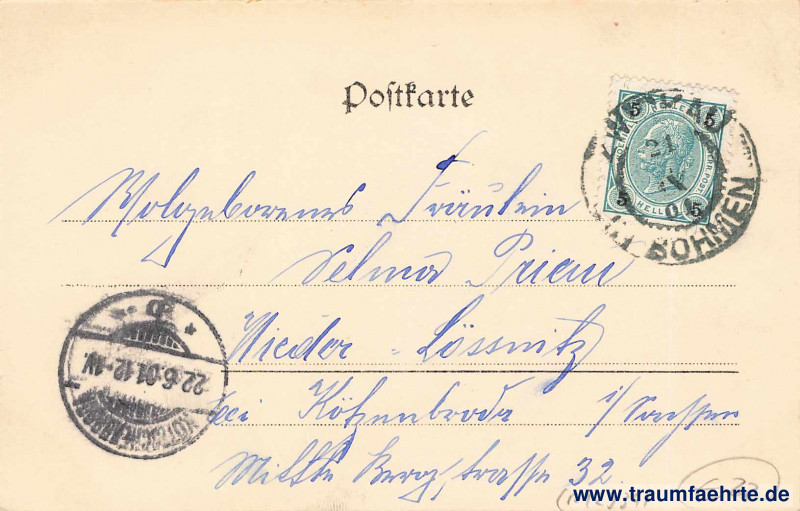 Postkarte
5 5
HELLER
5 5
ZINNWALD
21
01
BÖHMEN
Wolgeborenes Fräulein
Selma Prieau
Nieder-Lössnitz
bei Kötzenbroda i/Sachsen
Mittle Bergstrasse 32.
22.6.01.12-1N.
KÖTZSCHENBRODA
www.traumfaehrte.de